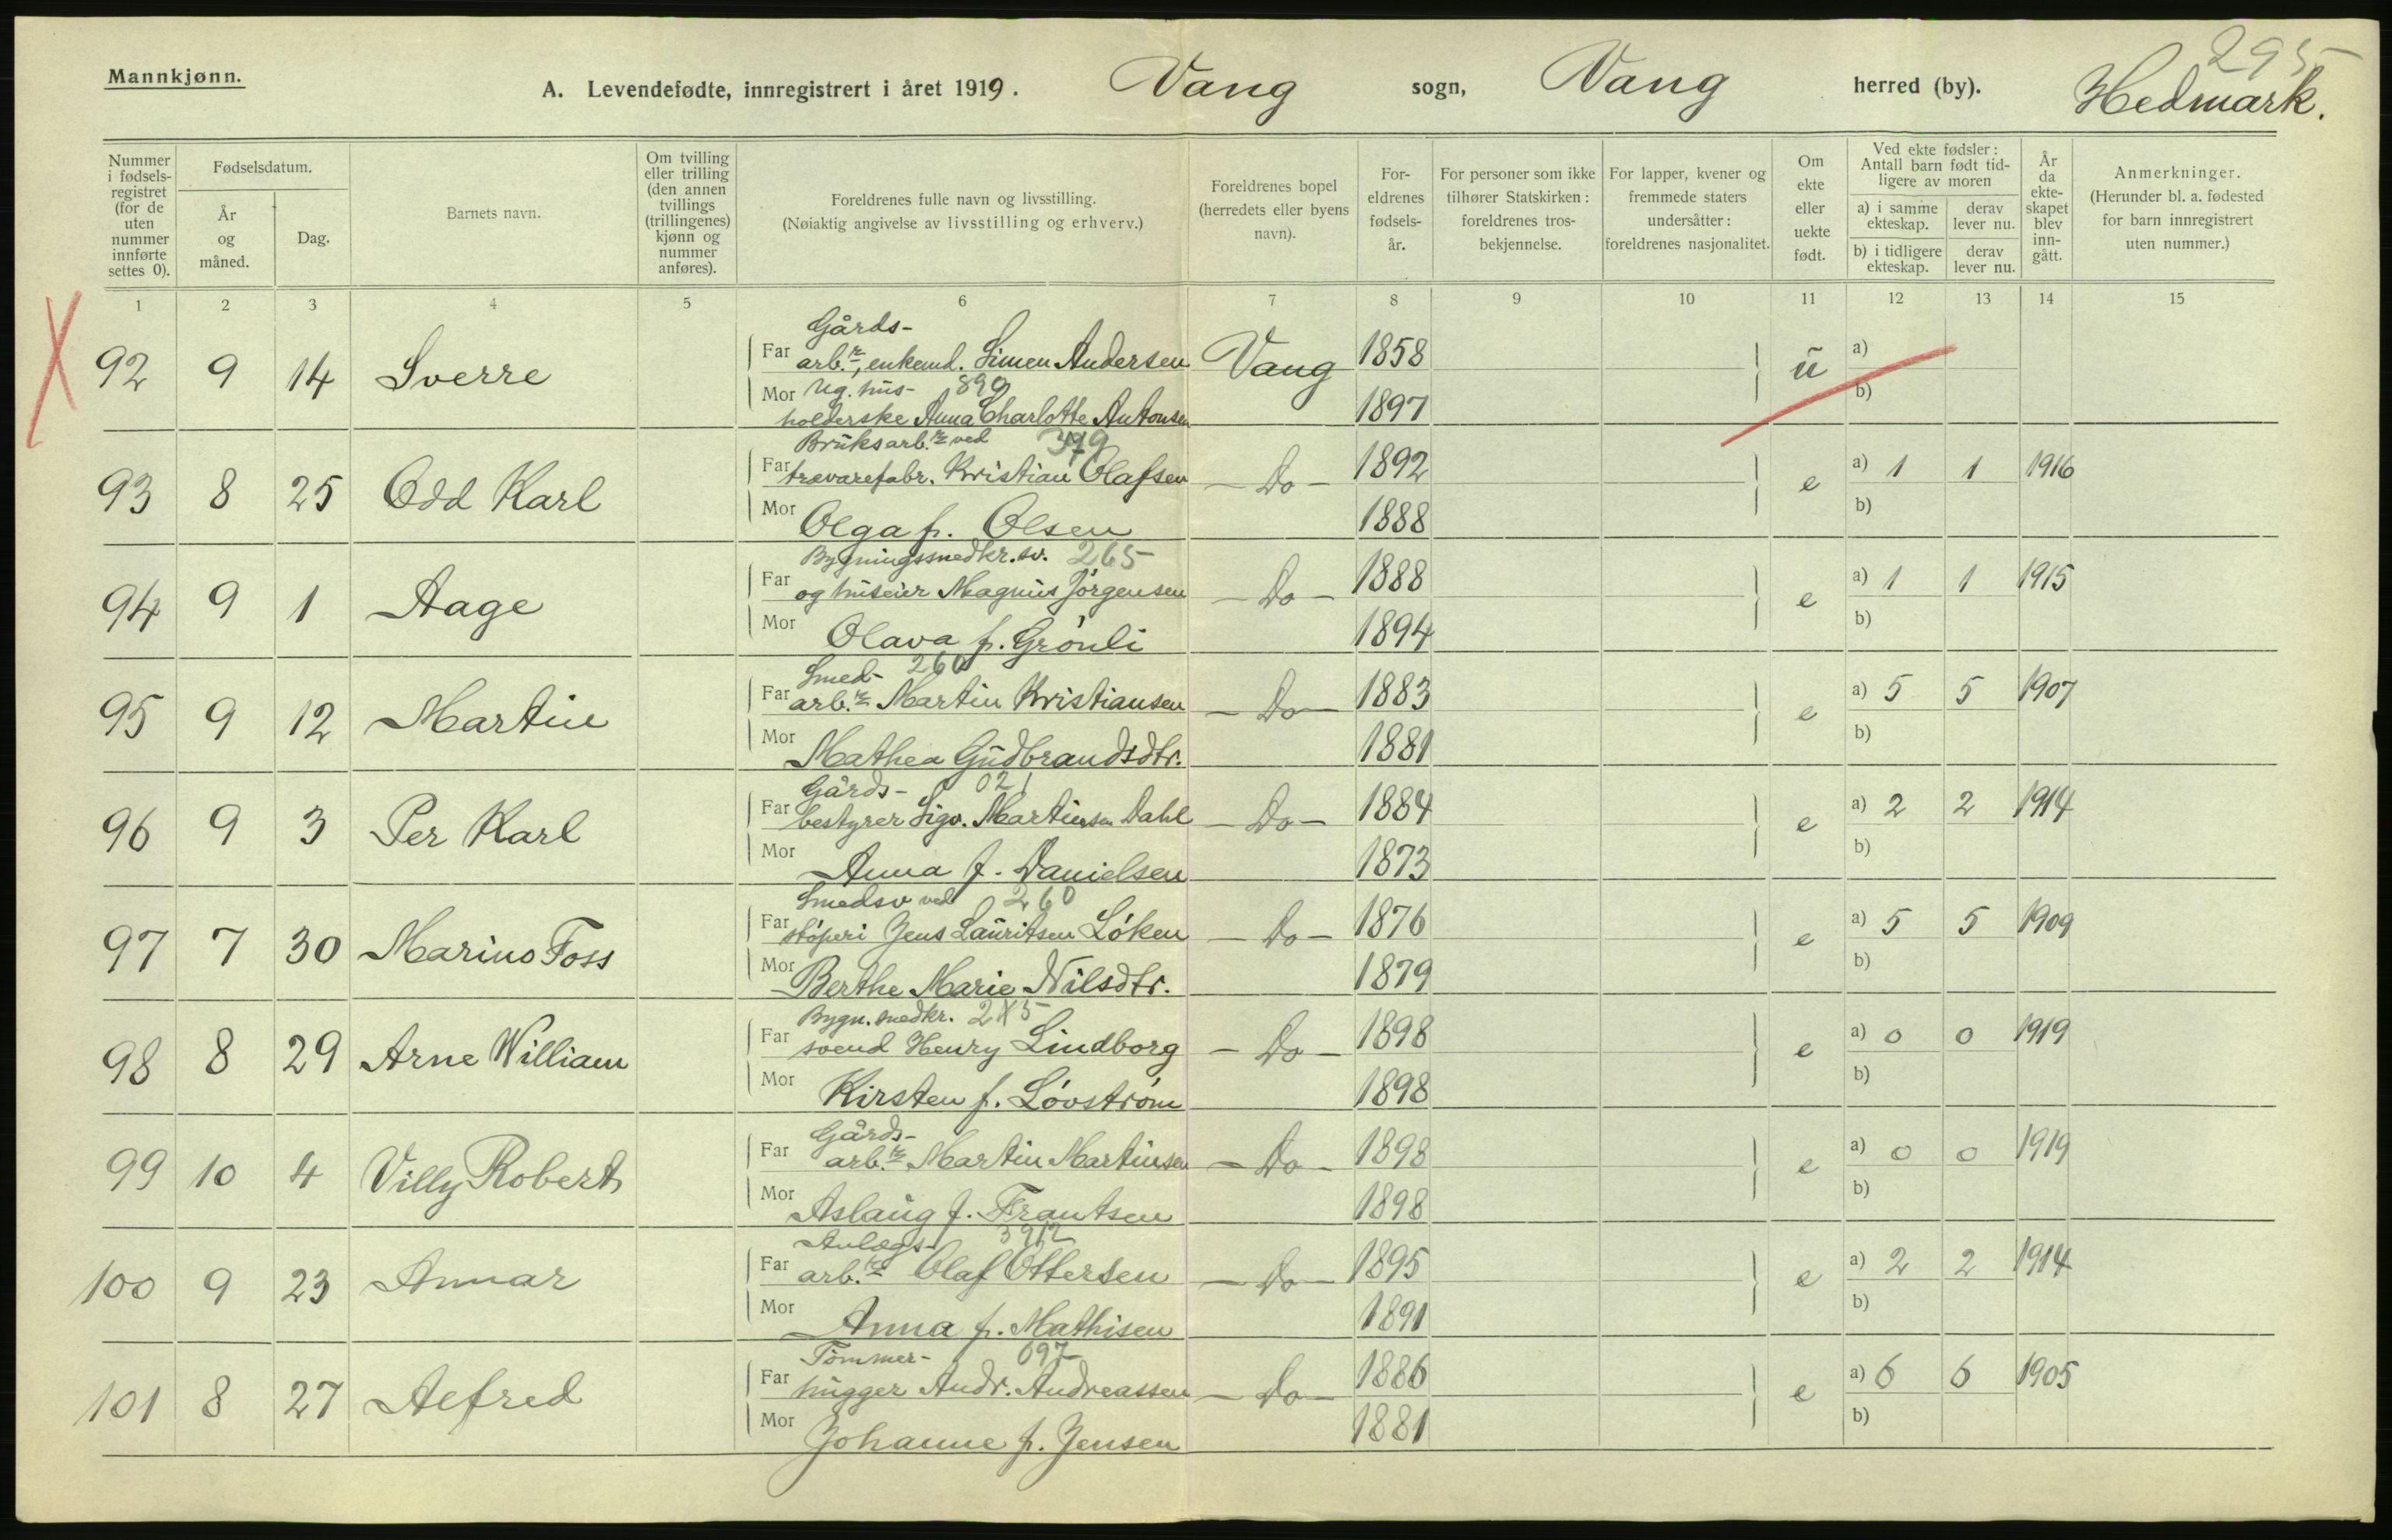 295
Mannkjønn.
A. Levendefødte, innregistrert i året 1919. Vang sogn, Vang herred (by). Hedmark.
Nummer i fødsels-registret (for de uten nummer innførte settes 0).
Fødselsdatum.
År og måned.
Dag.
Barnets navn.
Om tvilling eller trilling (den annen tvillings (trillingenes) kjønn og nummer anføres).
Foreldrenes fulle navn og livsstilling.
(Nøiaktig angivelse av livsstilling og erhverv.)
Foreldrenes bopel (herredets eller byens navn).
For-eldrenes fødsels-år.
For personer som ikke tilhører Statskirken: foreldrenes tros-bekjennelse.
For lapper, kvener og fremmede staters undersåtter: foreldrenes nasjonalitet.
Om ekte eller uekte født.
Ved ekte fødsler: Antall barn født tid-ligere av moren
a) i samme ekteskap.
derav lever nu.
b) i tidligere ekteskap.
derav lever nu.
År da ekte-skapet blev inn-gått.
Anmerkninger.
(Herunder bl. a. fødested for barn innregistrert uten nummer.)
1 2 3 4 5 6 7 8 9 10 11 12 13 14 15
Gårds-
92 9 14 Sverre Far arb.r, enkemd. Simen Andersen Vang 1858 u a)
Mor Ug. hus- 890
holderske Anna Charlotte Antonsen 1897 b)
Bruksarb.r ved 379
93 8 25 Odd Karl Far trævarefabr. Kristian Olafsen - Do - 1892 e a) 1 1 1916
Mor Olga f. Olsen 1888 b)
Bygningssnedkr.sv. 265
94 9 1 Aage Far og huseier Magnus Jörgensen - Do - 1888 e a) 1 1 1915
Mor Olava f. Grönli 1894 b)
Smed- 260
95 9 12 Martin Far arb.r Martin Kristiansen - Do - 1883 e a) 5 5 1907
Mor Mathea Gudbrandsdtr. 1881 b)
Gårds- 021
96 9 3 Per Karl Far bestyrer Sigv. Martinsen Dahl - Do - 1884 e a) 2 2 1914
Mor Anna f. Danielsen 1873 b)
Smedsv ved 260
97 7 30 Marius Foss Far stöperi Jens Lauritsen Löken - Do - 1876 e a) 5 5 1909
Mor Berthe Marie Nilsdtr. 1879 b)
Bygn. snedkr.
98 8 29 Arne William Far svend Henry Lindborg - Do - 1898 e a) 0 0 1919
Mor Kirsten f. Lövström 1898 b)
Gårds-
99 10 4 Villy Robert Far arb.r Martin Martinsen - Do - 1898 e a) 0 0 1919
Mor Aslaug f. Frantsen 1898 b)
Anlægs-
100 9 23 Annar Far arb.r Olaf Ottersen - Do - 1895 e a) 2 2 1914
Mor Anna f. Mathisen 1891 b)
Tömmer- 097
101 8 27 Alfred Far hugger Andr. Andreassen - Do - 1886 e a) 6 6 1905
Mor Johanne f. Jensen 1881 b)